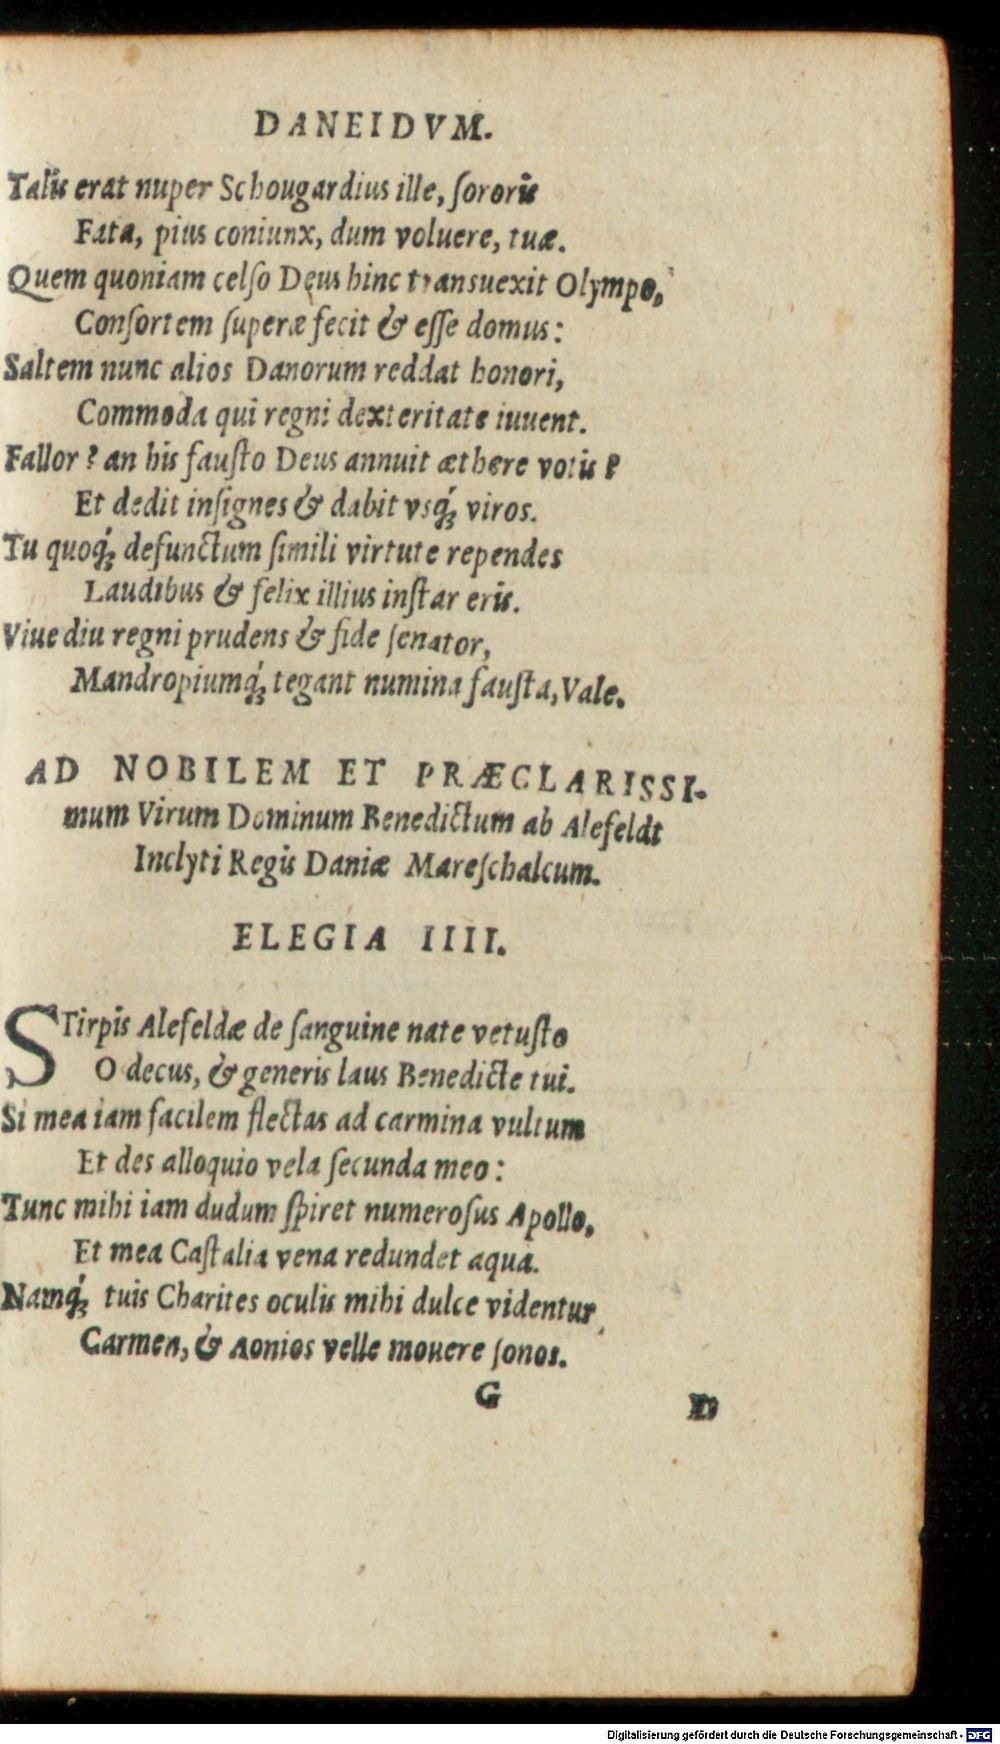 DANEIDVM.
Talis erat nuper Schougardius ille, ſororis
Fata, pius coniunx, dum voluere, tuæ.
Quem quoniam celſo Deus hinc transuexit Olympo,
Conſortem ſuperæ fecit & eſſe domus:
Saltem nunc alios Danorum reddat honori,
Commoda qui regni dexteritate iuuent.
Fallor? an his fauſto Deus annuit æthere votis?
Et dedit inſignes & dabit vsq́; viros.
Tu quoq́; defunctum ſimili virtute rependes
Laudibus & felix illius inſtar eris.
Viue diu regni prudens & fide ſenator,
Mandropiumq́; tegant numina fauſta, Vale.
AD NOBILEM ET PRÆCLARISSI-
mum Virum Dominum Benedictum ab Alefeldt
Inclyti Regis Daniæ Mareſchalcum.
ELEGIA IIII.
STirpis Alefeldæ de ſanguine nate vetuſto
O decus, & generis laus Benedicte tui.
Si mea iam facilem flectas ad carmina vultum
Et des alloquio vela ſecunda meo:
Tunc mihi iam dudum ſpiret numeroſus Apollo,
Et mea Caſtalia vena redundet aqua.
Namq́; tuis Charites oculis mihi dulce videntur
Carmen, & Aonios velle mouere ſonos.
G
Digitalisierung gefördert durch die Deutsche Forschungsgemeinschaft - DFG